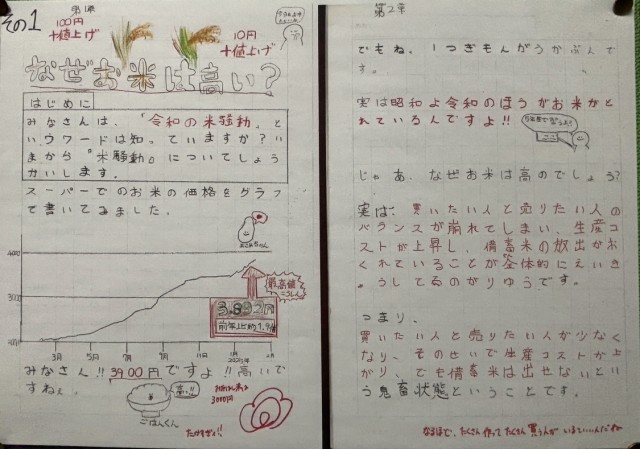 その1
第1章
100円
+値上げ
10円
+値上げ
なぜお米は高い?
はじめに
みなさんは、「令和の米騒動」と
いウワードは知っていますか?い
まから『米騒動』についてしょう
かいします。
スーパーでのお米の価格をグラフ
で書いてみました。
おこめちゃん
最高値
こうしん
3,892円
前年比約1.9倍
3月
5月
7月
9月
11月
1月
みなさん!!3900円ですよ!!高いで
すねぇ
高い!!
ごはんくん
3000円
たけすぎぃ!!
第2章
でもね、1つぎもんがうかぶんで
す。
実は昭和よ令和のほうがお米がと
れているんですよ!!
ここ
じゃあ、なぜお米は高のでしょう?
実は、買いたい人と売りたい人の
バランスが崩れてしまい、生産コ
ストが上昇し、備蓄米の放出がお
くれていることが全体的にえいき
ょうしてるのがりゆうです。
つまり、
買いたい人と売りたい人が少なく
なり、そのせいで生産コストが上
がり、でも備蓄米は出せないとい
う鬼畜状態ということです。
なるほど、たくさん作ってたくさん買う人がいるといいんだね